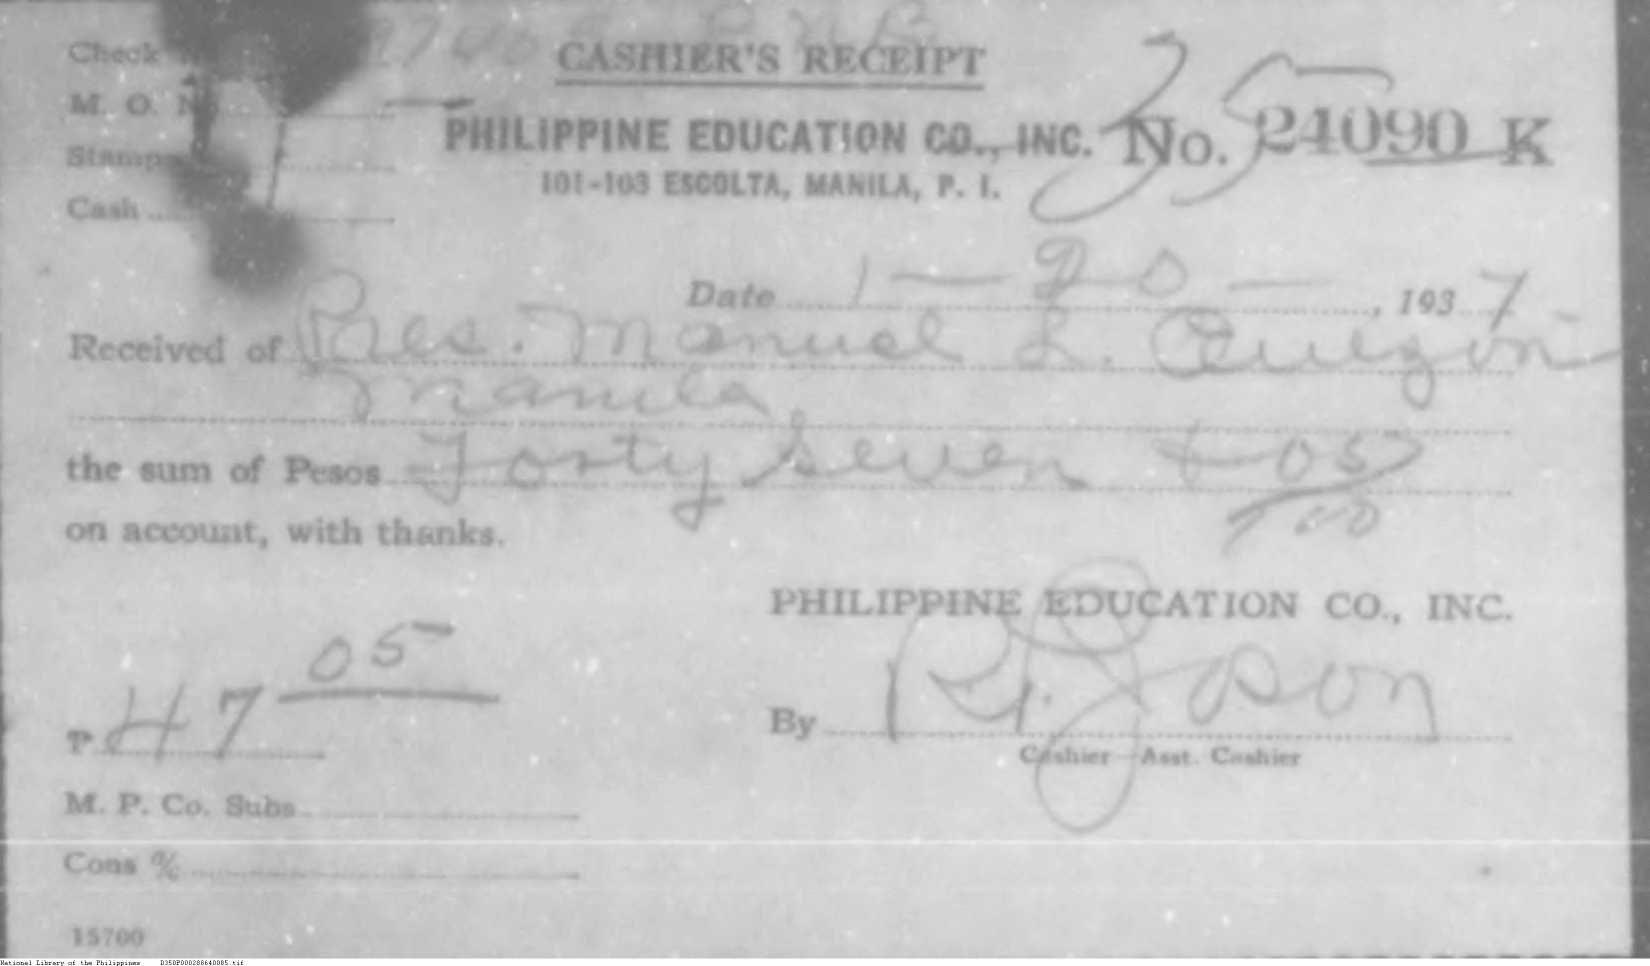 Check
CASHIER'S RECEIPT
35
M. O. No
PHILIPPINE EDUCATION CO., INC. No. 24090 K
Stamps
101-103 ESCOLTA, MANILA, P. I.
Cash
Date 1 - 20 - , 1937
Received of Pres. Manuel L. Quezon
Manila
the sum of Pesos Forty Seven & 05/100
on account, with thanks.
PHILIPPINE EDUCATION CO., INC.
₱ 47 05
By
Cashier—Asst. Cashier
M. P. Co. Subs
Cons %
15700
National Library of the Philippines D350P000208640085.tif